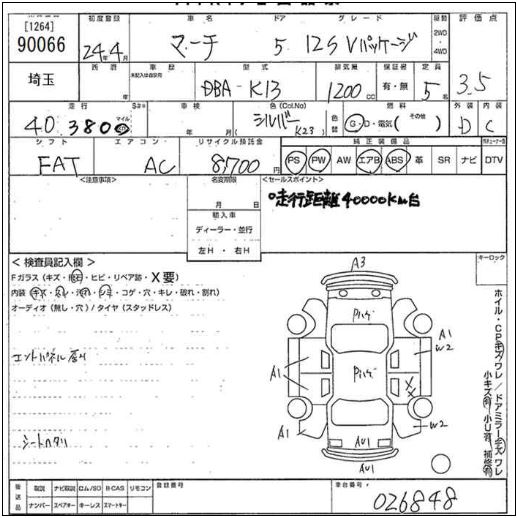 [1264]
90066
埼玉
初度登録 車名 ドア グレード 駆動 評価点
24年4月 マーチ 5 12S Vパッケージ 2WD・4WD 3.5
車歴 型式 排気量 保証書 定員
年 月 DBA-K13 1200CC 有・無 5名
走行 車検 色(Col.No) 色替 燃料 外装 内装
40,380 マイル 年 月 シルバー K23 G・D・電気( その他 ) D C
シフト エアコン リサイクル預託金 純正装備品
FAT AC 8,700円 PS PW AW エアB ABS 革 SR ナビ DTV
<注意事項> 名変期限 <セールスポイント>
月 日
○走行距離40000km台
輸入車
ディーラー・並行
左H・右H
<検査員記入欄> キーロック
Fガラス(キズ・飛石・ヒビ・リペア跡・X要)
内装(キズ・スレ・汚れ・シミ・コゲ・穴・キレ・破れ・割れ)
オーディオ(無し・穴)/タイヤ(スタッドレス)
シートヘタリ
A3
A1
W2
A1
A1
W2
AU1
AU1
ホイル・CPキズワレ/ドアミラーキズワレ
小キズ有 小U有 補修有
備送品 取説 ナビ取説 リモ/SD B-CAS リモコン 登録番号 車台番号
ナンバー スペアキー キーレス スマートキー 026848